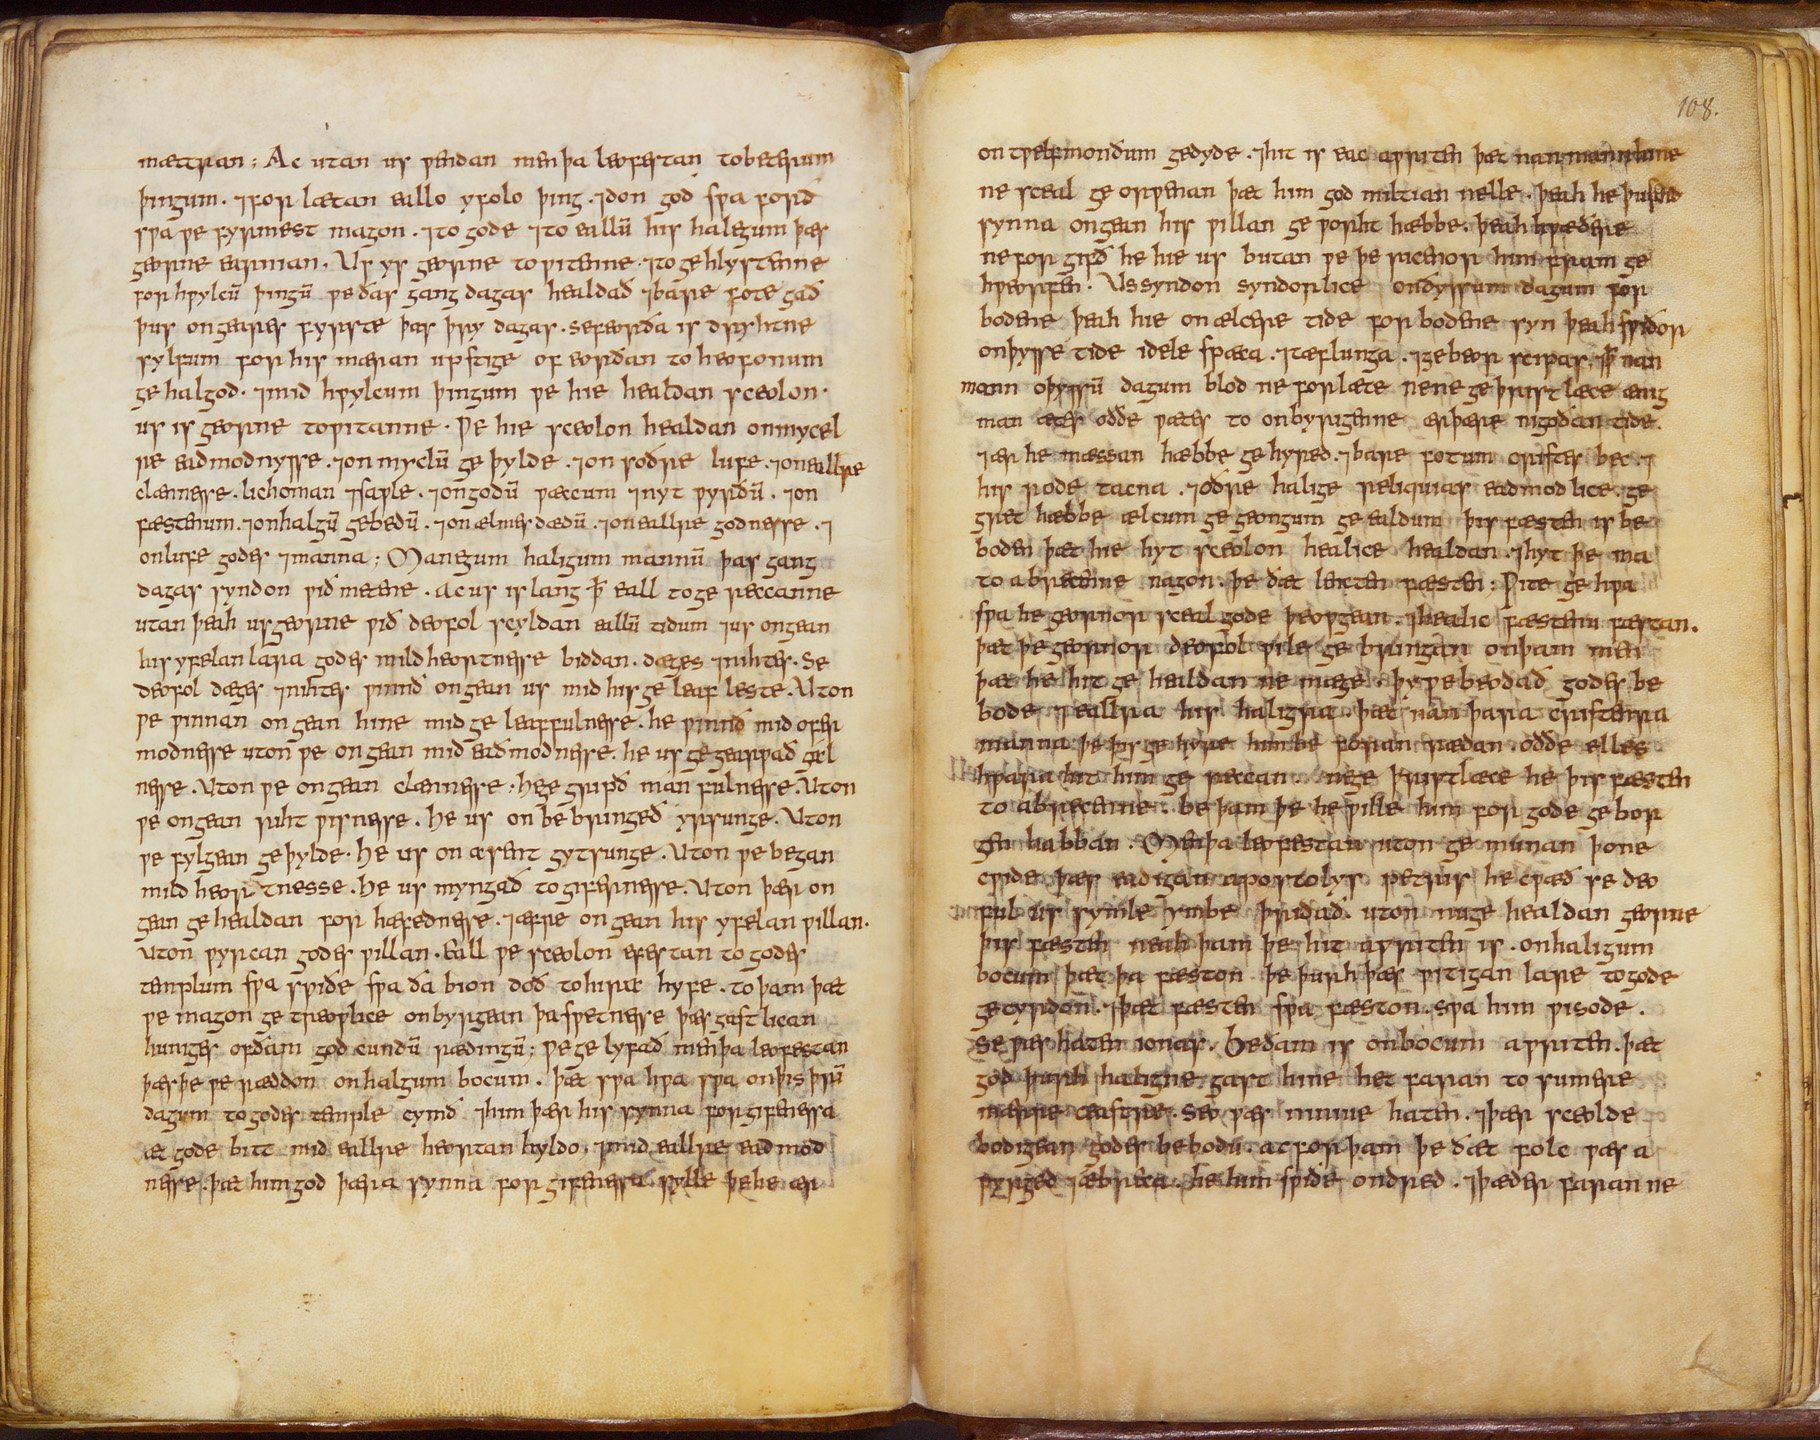 mættran; Ac utan us ƿendan men þa leofestan to beterum
þingum. ⁊ forlætan eallo yfolo þing. ⁊ don god swa forð
swa ƿe fyrmest magon. ⁊ to gode ⁊ to eallū his halegum þæs
georne earnian. Us ys georne to ƿitenne. ⁊ to gehlystenne
for hƿylcū þingū ƿe ðas gangdagas healdað ⁊ bare fote gað
þus on geares fyrste þas þry dagas. seƿeorða is drihtne
sylfum for his mæran upstige of eorðan to heofonum
gehalgod. ⁊ mid hƿylcum þingum ƿe hie healdan sceolon.
us is georne to ƿitanne. Ƿe hie sceolon healdan on mycel
re eadmodnysse. ⁊ on myclū geþylde. ⁊ on soðre lufe. ⁊ on eallre
clænnesse. lichoman ⁊ saƿle. ⁊ on godū ƿæccum ⁊ nyt ƿyrðū. ⁊ on
fæstenum. ⁊ on halgū gebedū. ⁊ on ælmesdædū. ⁊ on eallre godnesse. ⁊
on lufe godes ⁊ manna; Manegum haligum mannū þas gang
dagas syndon ƿið metene. ac us is lang þ̄ eall to gereccanne
utan þeah us georne ƿið deofol scyldan eallū tidum ⁊ us ongean
his yfelan lara godes mildheortnesse biddan. dæges ⁊ nihtes. Se
deofol dæges ⁊ nihtes ƿinnð ongean us mid his geleafleste. Uton
ƿe ƿinnan ongean hine mid geleaffulnesse. he ƿinnð mid ofer
modnesse uton ƿe ongean mid eadmodnesse. he us gegearƿað gæl
nesse. Uton ƿe ongean clænnesse. hæ gripð mán fulnesse. Uton
ƿe ongean riht ƿisnesse. He us on be bringeð yrsunge. Uton
ƿe fylgean geþylde. He us on æsent gytsunge. Uton ƿe began
mildheortnesse. He us myngað to gifernesse. Uton þær on
gean gehealdan forhæfednesse. ⁊ æfre ongean his yfelan ƿillan.
Uton ƿyrcean godes ƿillan. Eall ƿe sceolon efestan to godes
templum sƿa sƿiðe sƿa ða bion doð to hiræ hyfe. to þam þæt
ƿe magon getreoƿlice onbyrgean þa sƿetnesse þæs gastlican
huniges of ðam godcundū rædingū; Ƿe gelyfað men þa leofestan
þæs þe ƿe ræddon on halgum bocum. þæt sƿa hƿa sƿa on þis þrū
dagum to godes temple cymð ⁊ him þær his synna forgifenessa
æt gode bitt mid eallre heortan hyldo. ⁊ mid eallre eadmod
nesse. þæt him god þæra synna forgifenessa sylle þe he ær
108.
on tƿelfmondum gedyde. ⁊ hit is eac aƿriten þæt nan mann hine
ne sceal georƿenan þæt him god miltian nelle. þeah he þusend
synna ongean his ƿillan geƿorht hæbbe. þeah hƿæðere
ne forgifð he hie us butan ƿe þe ricenor him fram ge
hƿeorfen. Us syndon syndorlice on ðyssum dagum for
bodene þeah hie on ælcere tide forbodene syn þeah sƿiðor
on þysse tide idele spæca. ⁊ tæflunga. ⁊ gebeorscipas. ⁊ þ̄ nan
mann oþyssū dagum blod ne forlæte ne ne geþristlæce ænig
man ætes oððe ƿætes to onbyrigenne ær þære nigoðan tide.
⁊ ær he mæssan hæbbe gehyred. ⁊ bare fotum cristes bec. ⁊
his rode tacna. ⁊ oðre halige reliquias eadmodlice ge
gret hæbbe ælcum ge geongum ge ealdum þis fæsten is be
boden þæt hie hyt sceolon healice healdan. ⁊ hyt þe ma
to abrecenne nagon. þe ðæt lencten fæsten: Ƿite gehƿa
sƿa he geornor sceal gode þeoƿgean. ⁊ healic fæstenu fæstan.
þæt þe geornor deofol ƿile gebringan on þam men
þæt he hit gehealdan ne mæge. þy ƿe beodað godes be
bode ⁊ eallra his haligra. þæt nan þara cristenra
manna þe þis gehyre him be foran rædan oððe elles
hƿara hit him gereccan. ne geþristlæce he þis fæsten
to abrecenne. be þam þe he ƿille him for gode gebor
gen habban. Men þa leofestan uton gemunan þone
cƿide þæs eadigan apostolys petrus he cƿæð se deo
ful us symle ymbe þridað. uton nu ge healdan georne
þis fæsten neah þam þe hit aƿriten is. on haligum
bocum þæt þa fæston þe þurh þæs ƿitigan lare to gode
gecyrdon. ⁊ þæt fæsten sƿa fæston. sƿa him ƿisode.
se ƿæs haten ionas. Be ðam is on bocum aƿriten. þæt
god þurh haligne gast hine het faran to sumere
mærre ceastre. seo ƿæs niniue haten. ⁊ þær sceolde
bodigean godes bebodū. ac forþam þe ðæt folc ƿæs a
ƿyrged ⁊ æbreca. he him sƿiðe ondred. ⁊ þæder faran ne